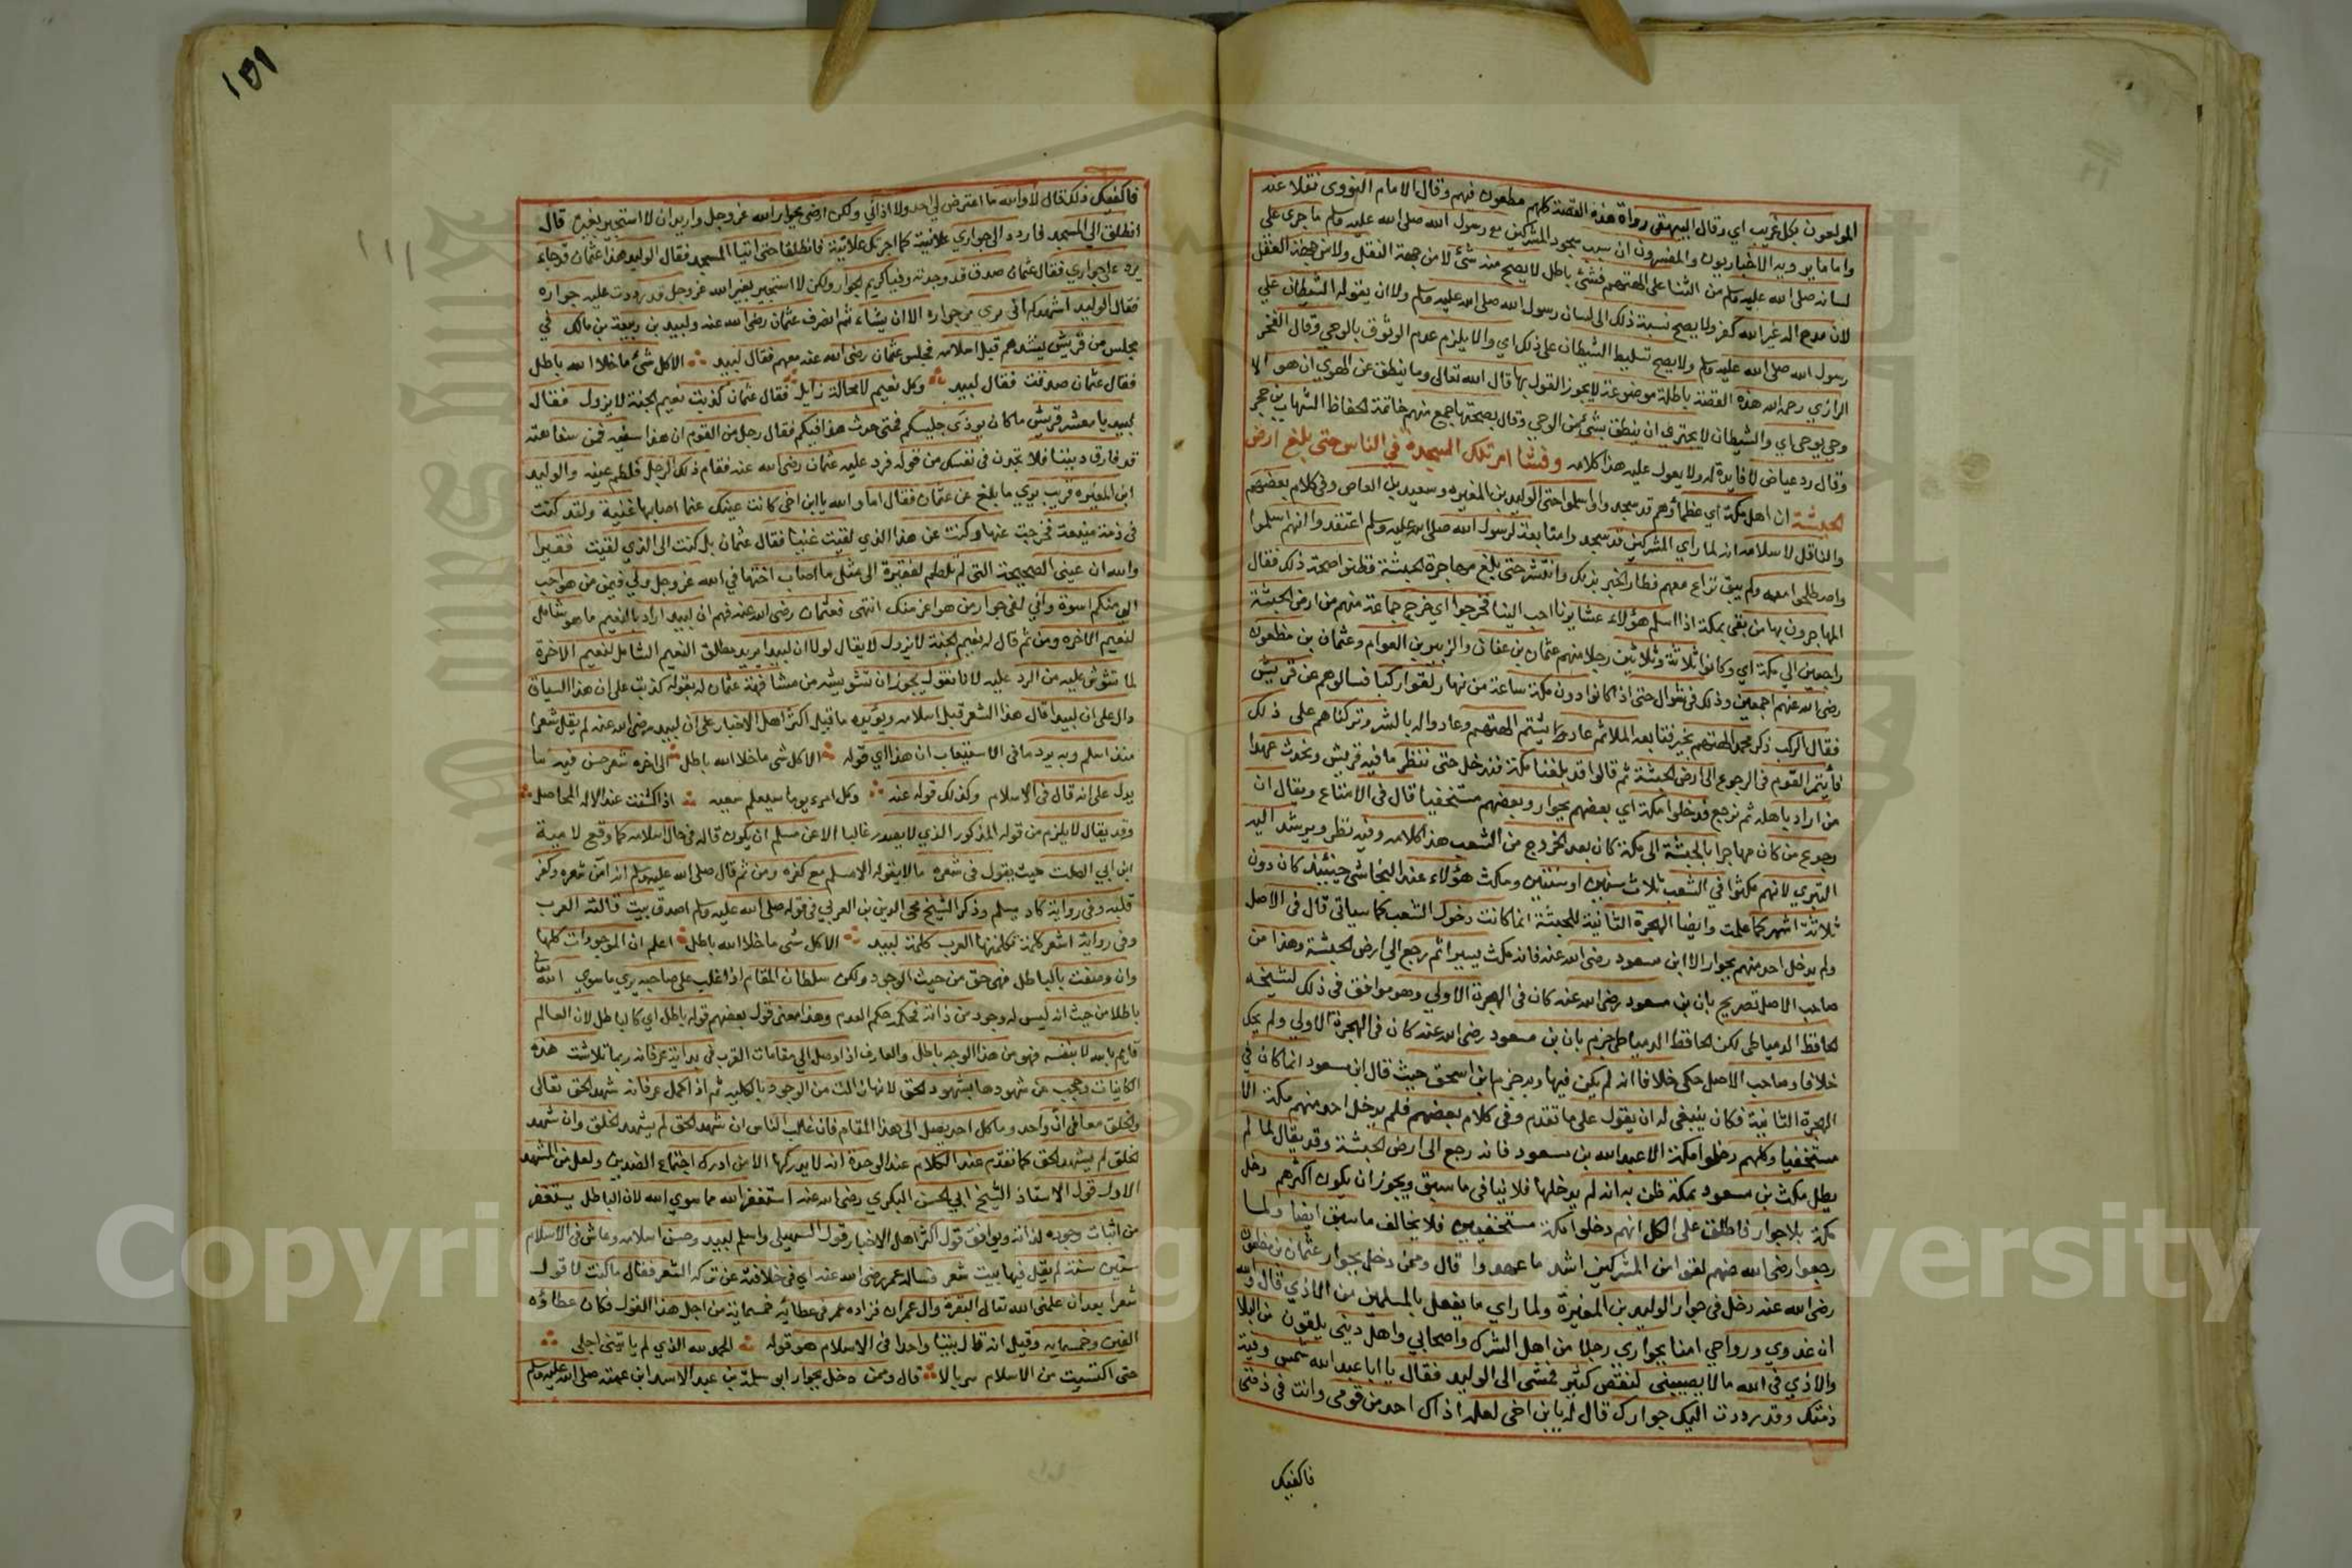 المولعون بكل غريب اي وقال البيهقى رواة هذه القصة كلهم مطعون فيهم وقال الامام النووى نقلا عنه
واما ما يرويه الاخباريون والمفسرون ان سبب سجود المشركين مع رسول الله صلى الله عليه وسلم ما جرى على
لسانه صلى الله عليه وسلم من الثنا على الهتهم فشئ باطل لا يصح منه شئ لا من جهة النقل ولا من جهة العقل
لان مدح اله غير الله كفر ولا يصح نسبة ذلك الى لسان رسول الله صلى الله عليه وسلم ولا ان يقوله الشيطان على
رسول الله صلى الله عليه وسلم ولا يصح تسليط الشيطان على ذلك اي والا يلزم عدم الوثوق بالوحي وقال الفخر
الرازي رحمه الله هذه القصة باطلة موضوعة لا يجوز القول بها قال الله تعالى وما ينطق عن الهوي ان هو الا
وحي يوحى اي والشيطان لا يجتري ان ينطق بشئ من الوحي وقال بصحتها جمع منهم خاتمة الحفاظ الشهاب بن حجر
وقال رد عياض لا فايدة له ولا يعول عليه هذا كلامه وفشا امر تلك السجدة في الناس حتى بلغ ارض
الحبشة ان اهل مكة اي عظماؤهم قد سجدوا واسلموا حتى الوليد بن المغيره وسعيد بن العاص وفي كلام بعضهم
والناقل لاسلامه انه لما راي المشركين قد سجدوا متابعة لرسول الله صلى الله عليه وسلم اعتقد انهم اسلموا
واصطلحوا معه ولم يبق نزاع معهم فطار الخبر بذلك وانتشر حتى بلغ مهاجرة الحبشة فظنوا صحة ذلك فقال
المهاجرون بها من بقى بمكة اذا اسلم هؤلاء عشايرنا احب الينا فخرجوا اي خرج جماعة منهم من ارض الحبشة
راجعين الي مكة اي وكانوا ثلاثة وثلاثين رجلا منهم عثمان بن عفان والزبير بن العوام وعثمان بن مظعون
رضى الله عنهم اجمعين وذلك في شوال حتى اذا كانوا دون مكة ساعة من نهار لقوا ركبا فسالوهم عن قريش
فقال الركب ذكر محمد الهتهم بخير فتابعه الملا ثم عاد يشتم الهتهم وعادوا له بالشر وتركناهم على ذلك
فأيتمر القوم في الرجوع الى ارض الحبشة ثم قالوا قد بلغنا مكة فندخل حتى ننظر ما فيه قريش ونحدث عهدا
من اراد باهله ثم نرجع فدخلوا مكة اي بعضهم بجوار وبعضهم مستخفيا قال في الامتاع ويقال ان
رجوع من كان مهاجرا بالحبشة الى مكة كان بعد الخروج من الشعب هذا كلامه وفيه نظر ويرشد اليه
التبري لانهم مكثوا في الشعب ثلاث سنين او سنتين ومكث هؤلاء عند النجاشى حينئيذ كان دون
ثلاثة اشهر كما علمت وايضا الهجرة الثانية للحبشة انما كانت دخول الشعب كما سياتى قال في الاصل
ولم يدخل احد منهم بجوار الا ابن مسعود رضى الله عنه فانه مكث يسيرا ثم رجع الى ارض الحبشة وهذا من
صاحب الاصل تصريح بان بن مسعود رضى الله عنه كان في الهجرة الاولي وهو موافق في ذلك لشيخه
الحافظ الدمياطى لكن الحافظ الدمياطى جزم بان بن مسعود رضى الله عنه كان في الهجرة الاولي ولم يحك
خلافا وصاحب الاصل حكى خلافا انه لم يكن فيها وبه جزم ابن اسحق حيث قال ابن مسعود انما كان في
الهجرة الثانية فكان ينبغى له ان يقول على ما تقدم وفى كلام بعضهم فلم يدخل احد منهم مكة الا
مستخفيا وكلهم دخلوا مكة الا عبد الله بن مسعود فانه رجع الى ارض الحبشة وقد يقال لما لم
يطل مكث بن مسعود بمكة ظن به انه لم يدخلها فلا ينافى ما سبق ويجوز ان يكون اكثرهم دخل
مكة بلا جوار فاطلق على الكل انهم دخلوا مكة مستخفيين فلا يخالف ما سبق ايضا ولما
رجعوا رضى الله عنهم لقوا من المشركين اشد ما عهدوا قال وممن دخل بجوار عثمان بن مظعون
رضى الله عنه دخل في جوار الوليد بن المغيرة ولما راي ما يفعل بالمسلمين من الاذي قال والله
ان غدوي ورواحي امنا بجواري رجلا من اهل الشرك واصحابي واهل دينى يلقون من البلا
والاذي في الله ما لا يصيبنى لنقص كثير فمشى الى الوليد فقال يا ابا عبد الله شمس وفيت
ذمتك وقد رددت اليك جوارك قال له يا بن اخى لعله اذاك احد من قومى وانت في ذمتى
فاكفيك
١٥١
١١١
فاكفيك ذلك قال لا والله ما اعترض لي احد ولا اذاني ولكن ارضى بجوار الله عز وجل واريد ان لا استجير بغيره قال
انطلق الى المسجد فاردد الى جواري علانية كما اجرتك علانية فانطلقا حتى اتيا المسجد فقال الوليد هذا عثمان قد جاء
يرد على جواري فقال عثمان صدق قد وجدته وفيا كريم الجوار ولكن لا استجير بغير الله عز وجل قد رددت عليه جواره
فقال الوليد اشهدكم انى بري من جواره الا ان يشاء ثم انصرف عثمان رضى الله عنه ولبيد بن ربيعة بن مالك في
مجلس من قريش ينشدهم قبل اسلامه فجلس عثمان رضى الله عنه معهم فقال لبيد الا كل شئ ما خلا الله باطل
فقال عثمان صدقت فقال لبيد وكل نعيم لا محالة زايل فقال عثمان كذبت نعيم الجنة لا يزول فقال
لبيد يا معشر قريش ما كان يوذى جليسكم فمتى حدث هذا فيكم فقال رجل من القوم ان هذا سفيه فمن سفاهته
قد فارق ديننا فلا تجدن في نفسك من قوله فرد عليه عثمان رضى الله عنه فقام ذلك الرجل فلطم عينه والوليد
ابن المغيره قريب يري ما بلغ من عثمان فقال اما والله يا ابن اخى كانت عينك عما اصابها غنية ولقد كنت
في ذمة منيعة فخرجت عنها وكنت عن هذا الذي لقيت غنيا فقال عثمان بل كنت الى الذي لقيت فقيرا
والله ان عينى الصحيحة التى لم تلطم لفقيرة الى مثل ما اصاب اختها في الله عز وجل ولي فيمن هو احب
الى منكم اسوة واني لفى جوار من هو اعز منك انتهى فعثمان رضى الله عنه فهم ان لبيد اراد بالنعيم ما هو شامل
لنعيم الاخره ومن ثم قال له نعيم الجنة لا يزول لا يقال لولا ان لبيدا يريد مطلق النعيم الشامل لنعيم الاخرة
لما تشوش عليه من الرد عليه لانا نقول يجوز ان تشويشه من مشافهة عثمان له بقوله كذبت على ان هذا السياق
دال على ان لبيدا قال هذا الشعر قبل اسلامه ويؤيده ما قيل اكثر اهل الاخبار على ان لبيد رضى الله عنه لم يقل شعرا
منذ اسلم وبه يرد ما فى الاستيعاب ان هذا اي قوله الا كل شى ما خلا الله باطل الى اخره شعر حسن فيه ما
يدل على انه قال في الاسلام وكذلك قوله عنه وكل امرء يوما سيعلم سعيه اذا كشفت عند الاله المحاصل
وقد يقال لا يلزم من قوله المذكور الذي لا يصدر غالبا الا عن مسلم ان يكون قاله في حال اسلامه كما وقع لامية
ابن ابي الصلت حيث يقول في شعره ما لا يقوله الا مسلم مع كفره ومن ثم قال صلى الله عليه وسلم انه امن شعره وكفر
قلبه وفى رواية كاد يسلم وذكر الشيخ محى الدين بن العربي في قوله صلى الله عليه وسلم اصدق بيت قالته العرب
وفى رواية اشعر كلمة تكلمت بها العرب كلمة لبيد الا كل شى ما خلا الله باطل اعلم ان الموجودات كلها
وان وصفت بالباطل فهى حق من حيث الوجود ولكن سلطان المقام اذا غلب على صاحبه يري ما سوي الله تعالى
باطلا من حيث انه ليس له وجود من ذاته فحكمه حكم العدم وهذا معنى قول بعضهم قوله باطل اي كالباطل لان العالم
قايم بالله لا بنفسه فهو من هذا الوجه باطل والعارف اذا وصل الى مقامات القرب في بداية عرفانه ربما تلاشت هذه
الكاينات وحجب عن شهودها بشهود الحق لا نها زالت من الوجود بالكليه ثم اذا كمل عرفانه شهد الحق تعالى
والخلق معا في ان واحد وما كل احد يصل الى هذا المقام فان غالب الناس ان شهد الحق لم يشهد الخلق وان شهد
الخلق لم يشهد الحق كما تقدم عند الكلام عند الوحدة انه لا يدركها الا من ادرك اجتماع الضدين ولعل من المشهد
الاول قول الاستاذ الشيخ ابي الحسن البكري رضى الله عنه استغفر الله مما سوي الله لان الباطل يستغفر
من اثبات وجوده لذاته ويوافق قول اكثر اهل الاخبار قول السهيلى واسلم لبيد وحسن اسلامه وعاش في الاسلام
ستين سنة لم يقل فيها بيت شعر فساله عمر رضى الله عنه اي في خلافته عن تركه الشعر فقال ما كنت لاقول
شعرا بعد ان علمنى الله تعالى البقرة وال عمران فزاده عمر في عطائه خمسماية من اجل هذا القول فكان عطاؤه
الفين وخمسمايه وقيل انه قال بيتا واحدا في الاسلام هو قوله الحمد لله الذي لم ياتينى اجلى
حتى اكتسيت من الاسلام سربالا قال وممن دخل بجوار ابو سلمة بن عبد الاسد ابن عمته صلى الله عليه وسلم
Copyright © King Saud University